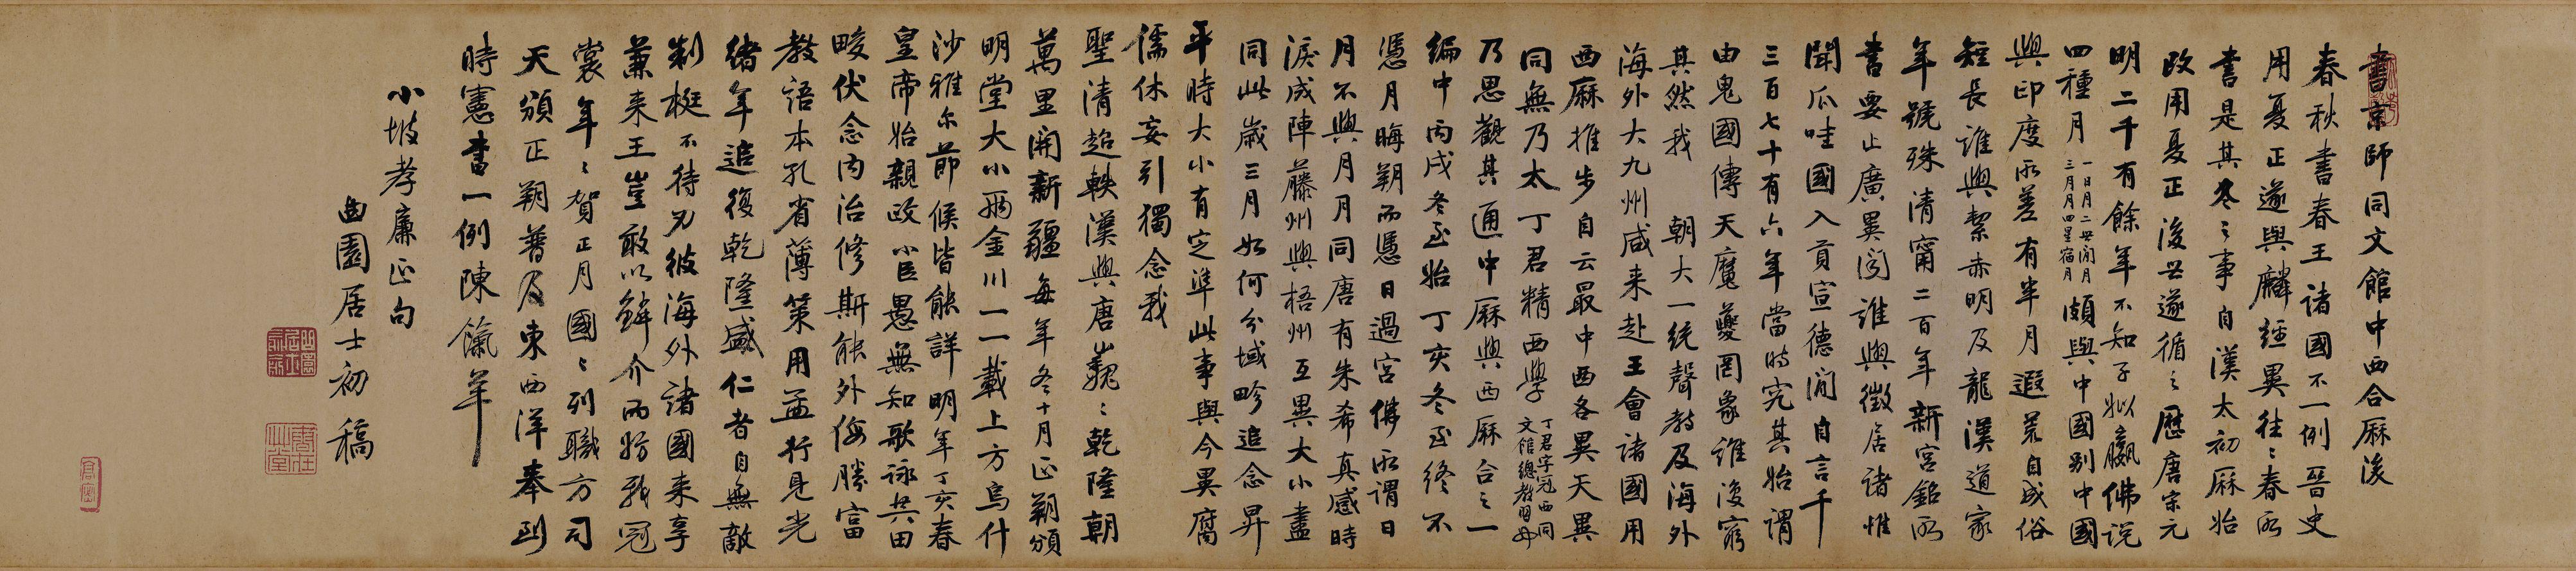 書京師同文館中西合厤後
春秋書春王諸國不一例晉史
用夏正遂與麟經異往〻春所
書是其冬之事自漢太初厤始
改用夏正後世遂循之歷唐宗元
明二千有餘年不知子姒嬴佛說
四種月一日月二世間月三月月四星宿月頗與中國别中國
與印度所差有半月遐荒自成俗
短長誰與絜赤明及龍漢道家
年號殊清甯二百年新宮銘所
書要止廣異聞誰與徵居諸惟
聞爪哇國入貢宣德間自言千
三百七十有六年當時究其始謂
由鬼國傳天魔夔罔象誰復窮
其然我 朝大一統聲教及海外
海外大九州咸来赴王會諸國用
西厤推步自云最中西各異天異
同無乃太丁君精西學丁君字冠西同文館總教習毋
乃思觀其通中厤與西厤合之一
編中丙戌冬至始丁亥冬至終不
憑月晦朔而憑日過宮佛所謂日
月不與月月同唐有朱希真感時
淚成陣藤州與梧州互異大小盡
同此歲三月如何分域畛追念昇
平時大小有定準此事與今異腐
儒休妄引獨念我
聖清超軼漢與唐巍〻乾隆朝
萬里開新疆每年冬十月正朔頒
明堂大小兩金川一一載上方烏什
沙雅尔節候皆能詳明年丁亥春
皇帝始親政小臣愚無知歌詠共田
畯伏念内治修斯能外侮勝富
教語本孔省薄策用孟行見光
緒年追復乾隆盛仁者自無敵
制梃不待刃彼海外諸國来享
兼来王豈敢以鱗介而妨我冠
裳年〻賀正月國〻列職方司
天頒正朔普及東西洋奉到
時憲書一例陳餼羊
小坡孝廉正句
曲園居士初稿